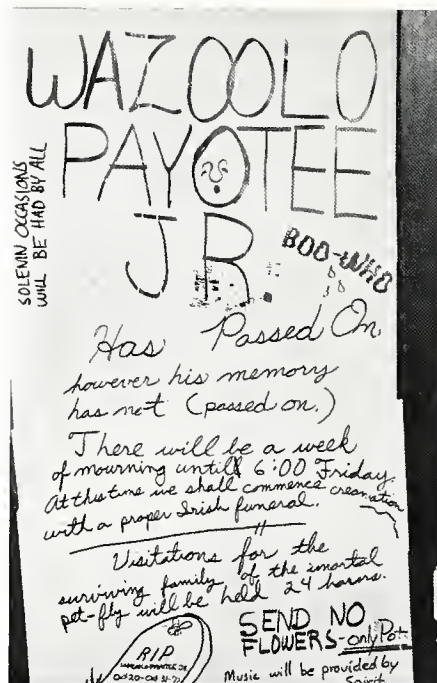 WAZOOLO
PAYOTEE
JR
SOLEMN OCCASIONS
WILL BE HAD BY ALL
BOO-WHO
Has Passed On
however his memory
has not (passed on.)
There will be a week
of mourning untill 6:00 Friday.
At this time we shall commence cremation
with a proper Irish funeral.
Visitations for the
surviving family of the imortal
pet-fly will be held 24 hours.
SEND NO
FLOWERS-only Pot.
RIP
Music will be provided by
Spirit